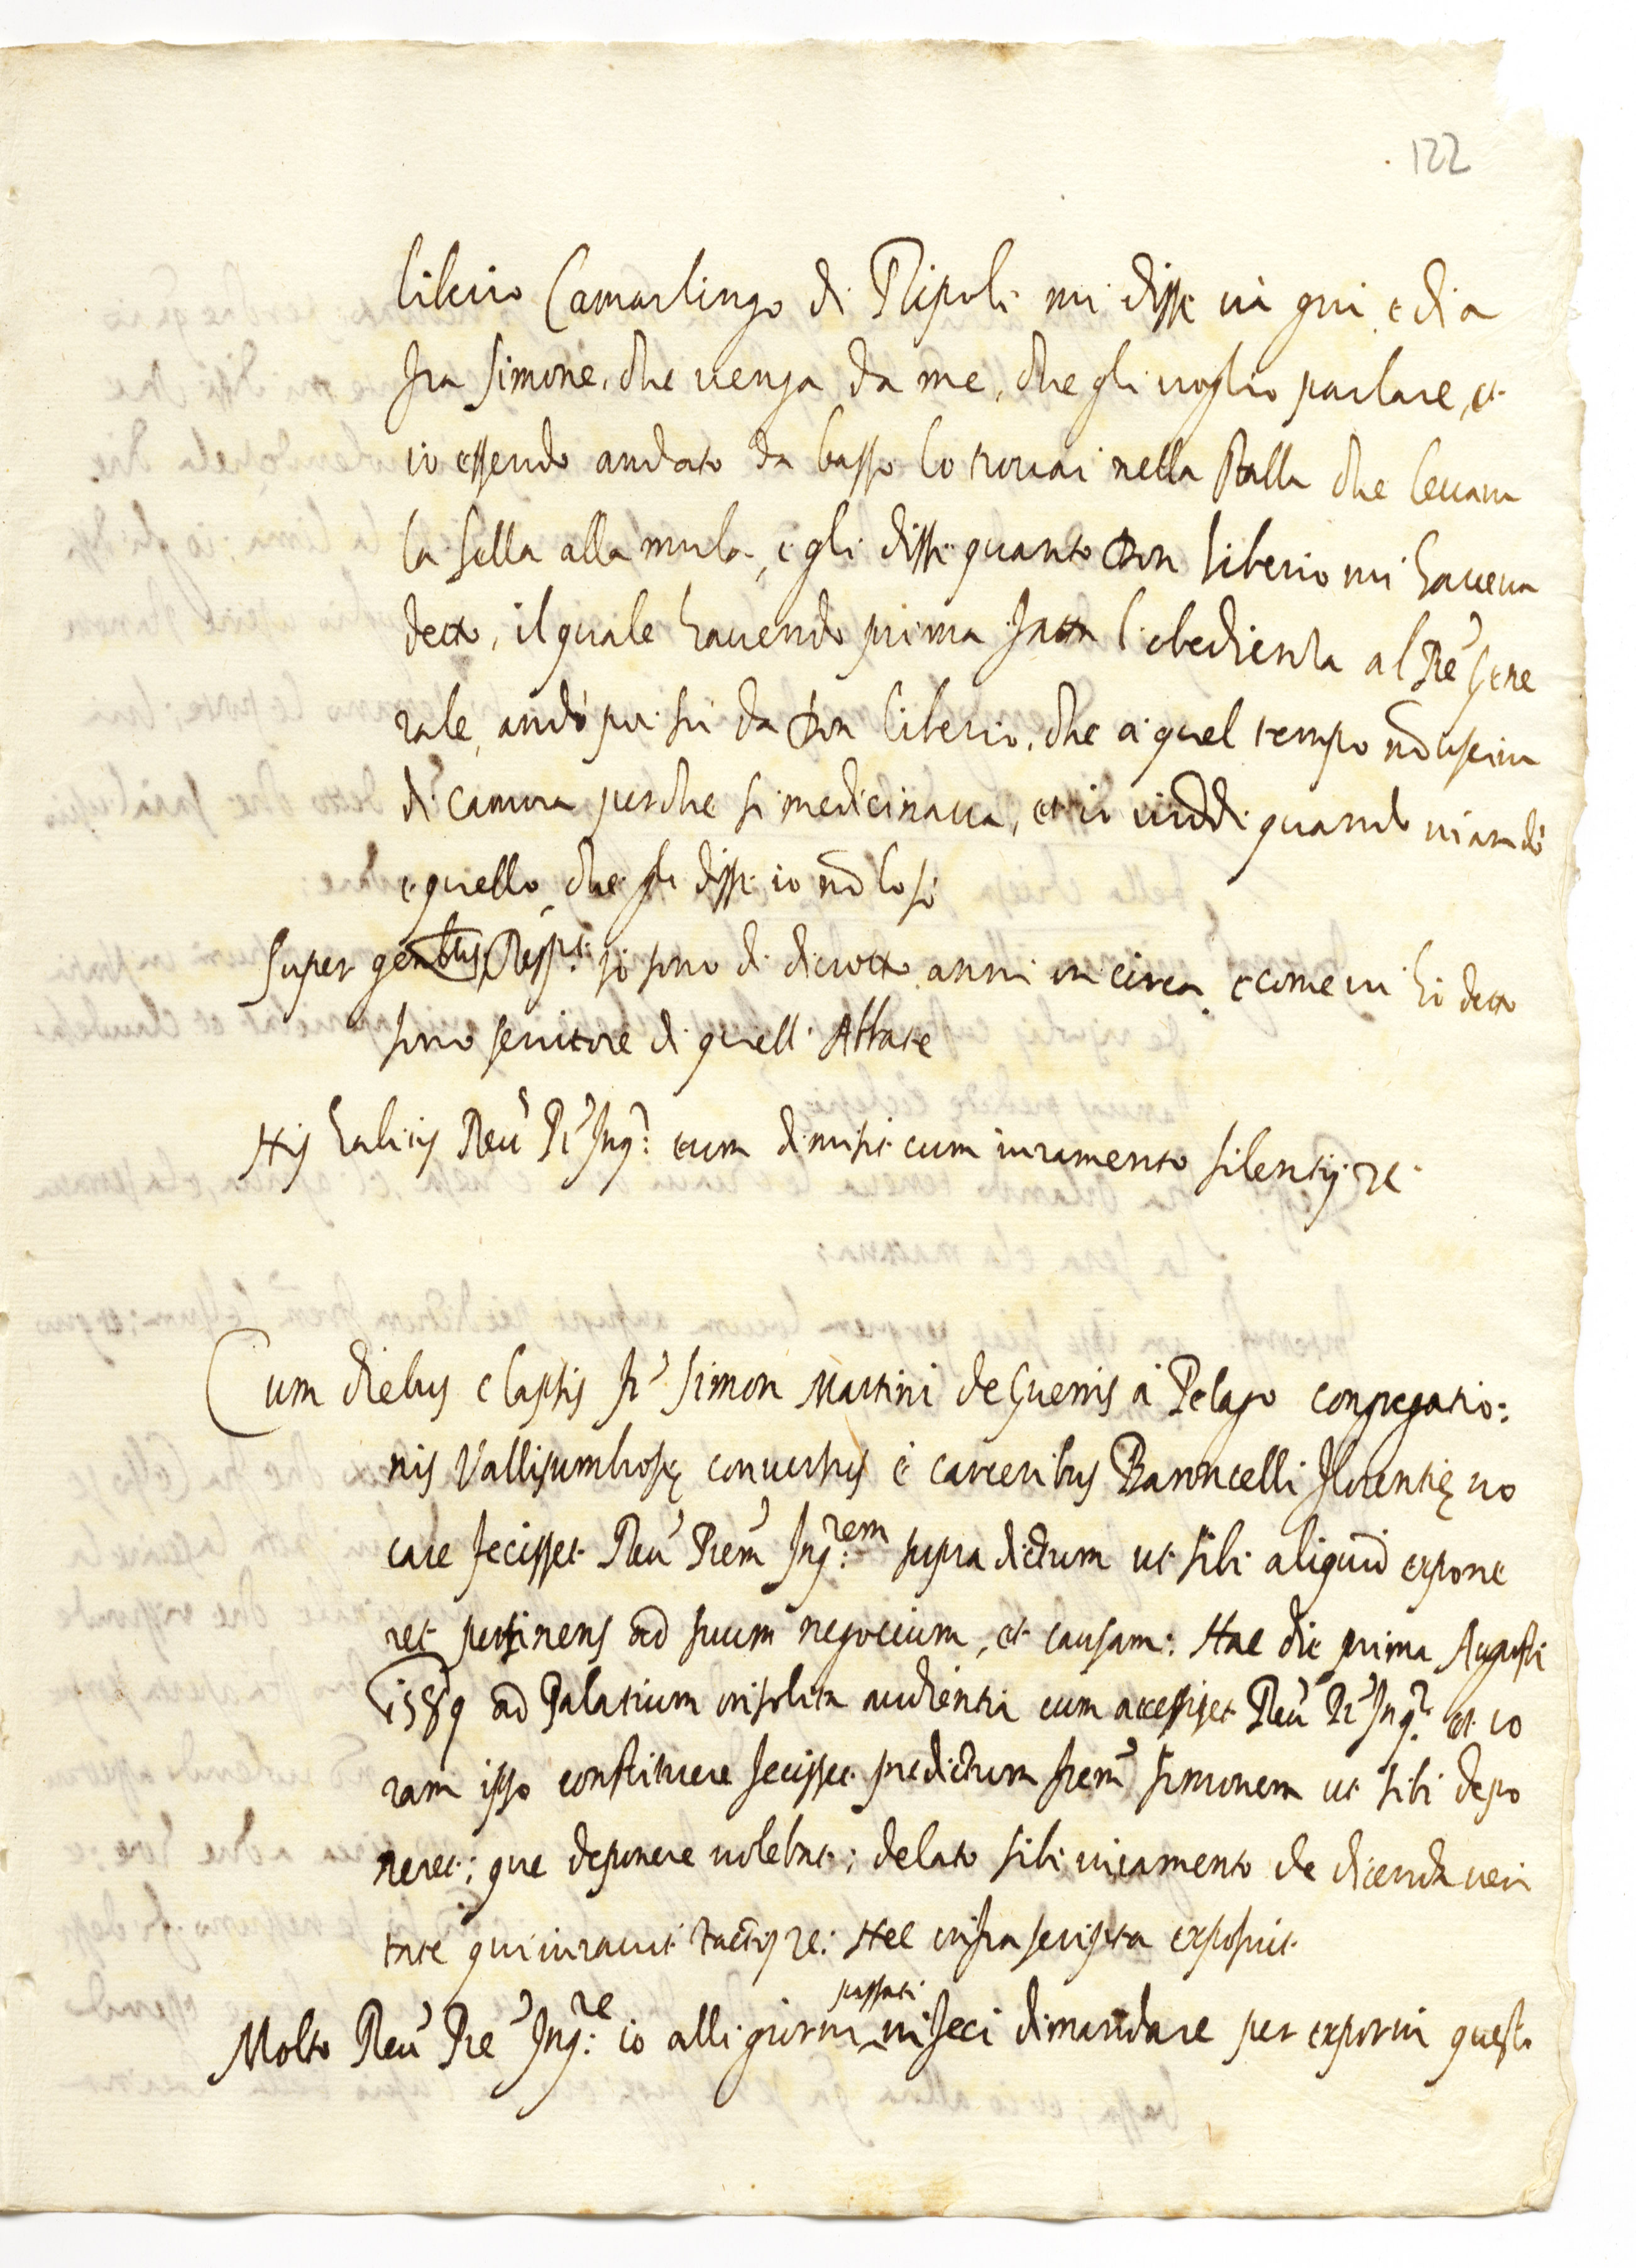 122
liberio Camarlingo di Ripoli mi disse và qui e di a
fra Simone, che venga da me, che gli voglio parlare, et
io essendo andato da basso lo trovai nella stalla che levava
la sella alla mula, e gli dissi quanto Don liberio mi haveva
detto, il quale havendo prima fatta l'obedienza al Pre' Gene
rale, andò poi sù da Don liberio, che à quel tempo nõ usciva
di camera perche si medicinava, et io viddi quando vi andò
e quello, che gli disse io nõ lo sò
Super generalibus Respt: io sono di diciotto anni in circa, e come vi hò detto
sono servitore di quell' Abbate
His habitis Reu' Pr' Inqr: eum dimisit cum iuramento silentij etc
Cum diebus elapsis fr' Simon Martini de Guerris à Pelago congregatio:
nis Vallisumbrosę conversus è carceribus Baroncelli Florentię vo
care fecisset Reu' Prem' Inq:rem supra dictum ut sibi aliquid expone
ret pertinens ad suum negocium, et causam: Hac die prima Augusti
1589 ad Palatium in solita audientia cum accessiset Reu' Pr' Inqr et co
ram ipso constituere fecisset predictum frem' Simonem ut sibi depo
neret; que deponere volebat; delato sibi iuramento de dicenda veri
tate qui iuravit tactis etc: Hec infrascripta exposuit
passati
Molto Reu' Pre' Inq:re io alli giorni vi feci dimandare per exporvi questo